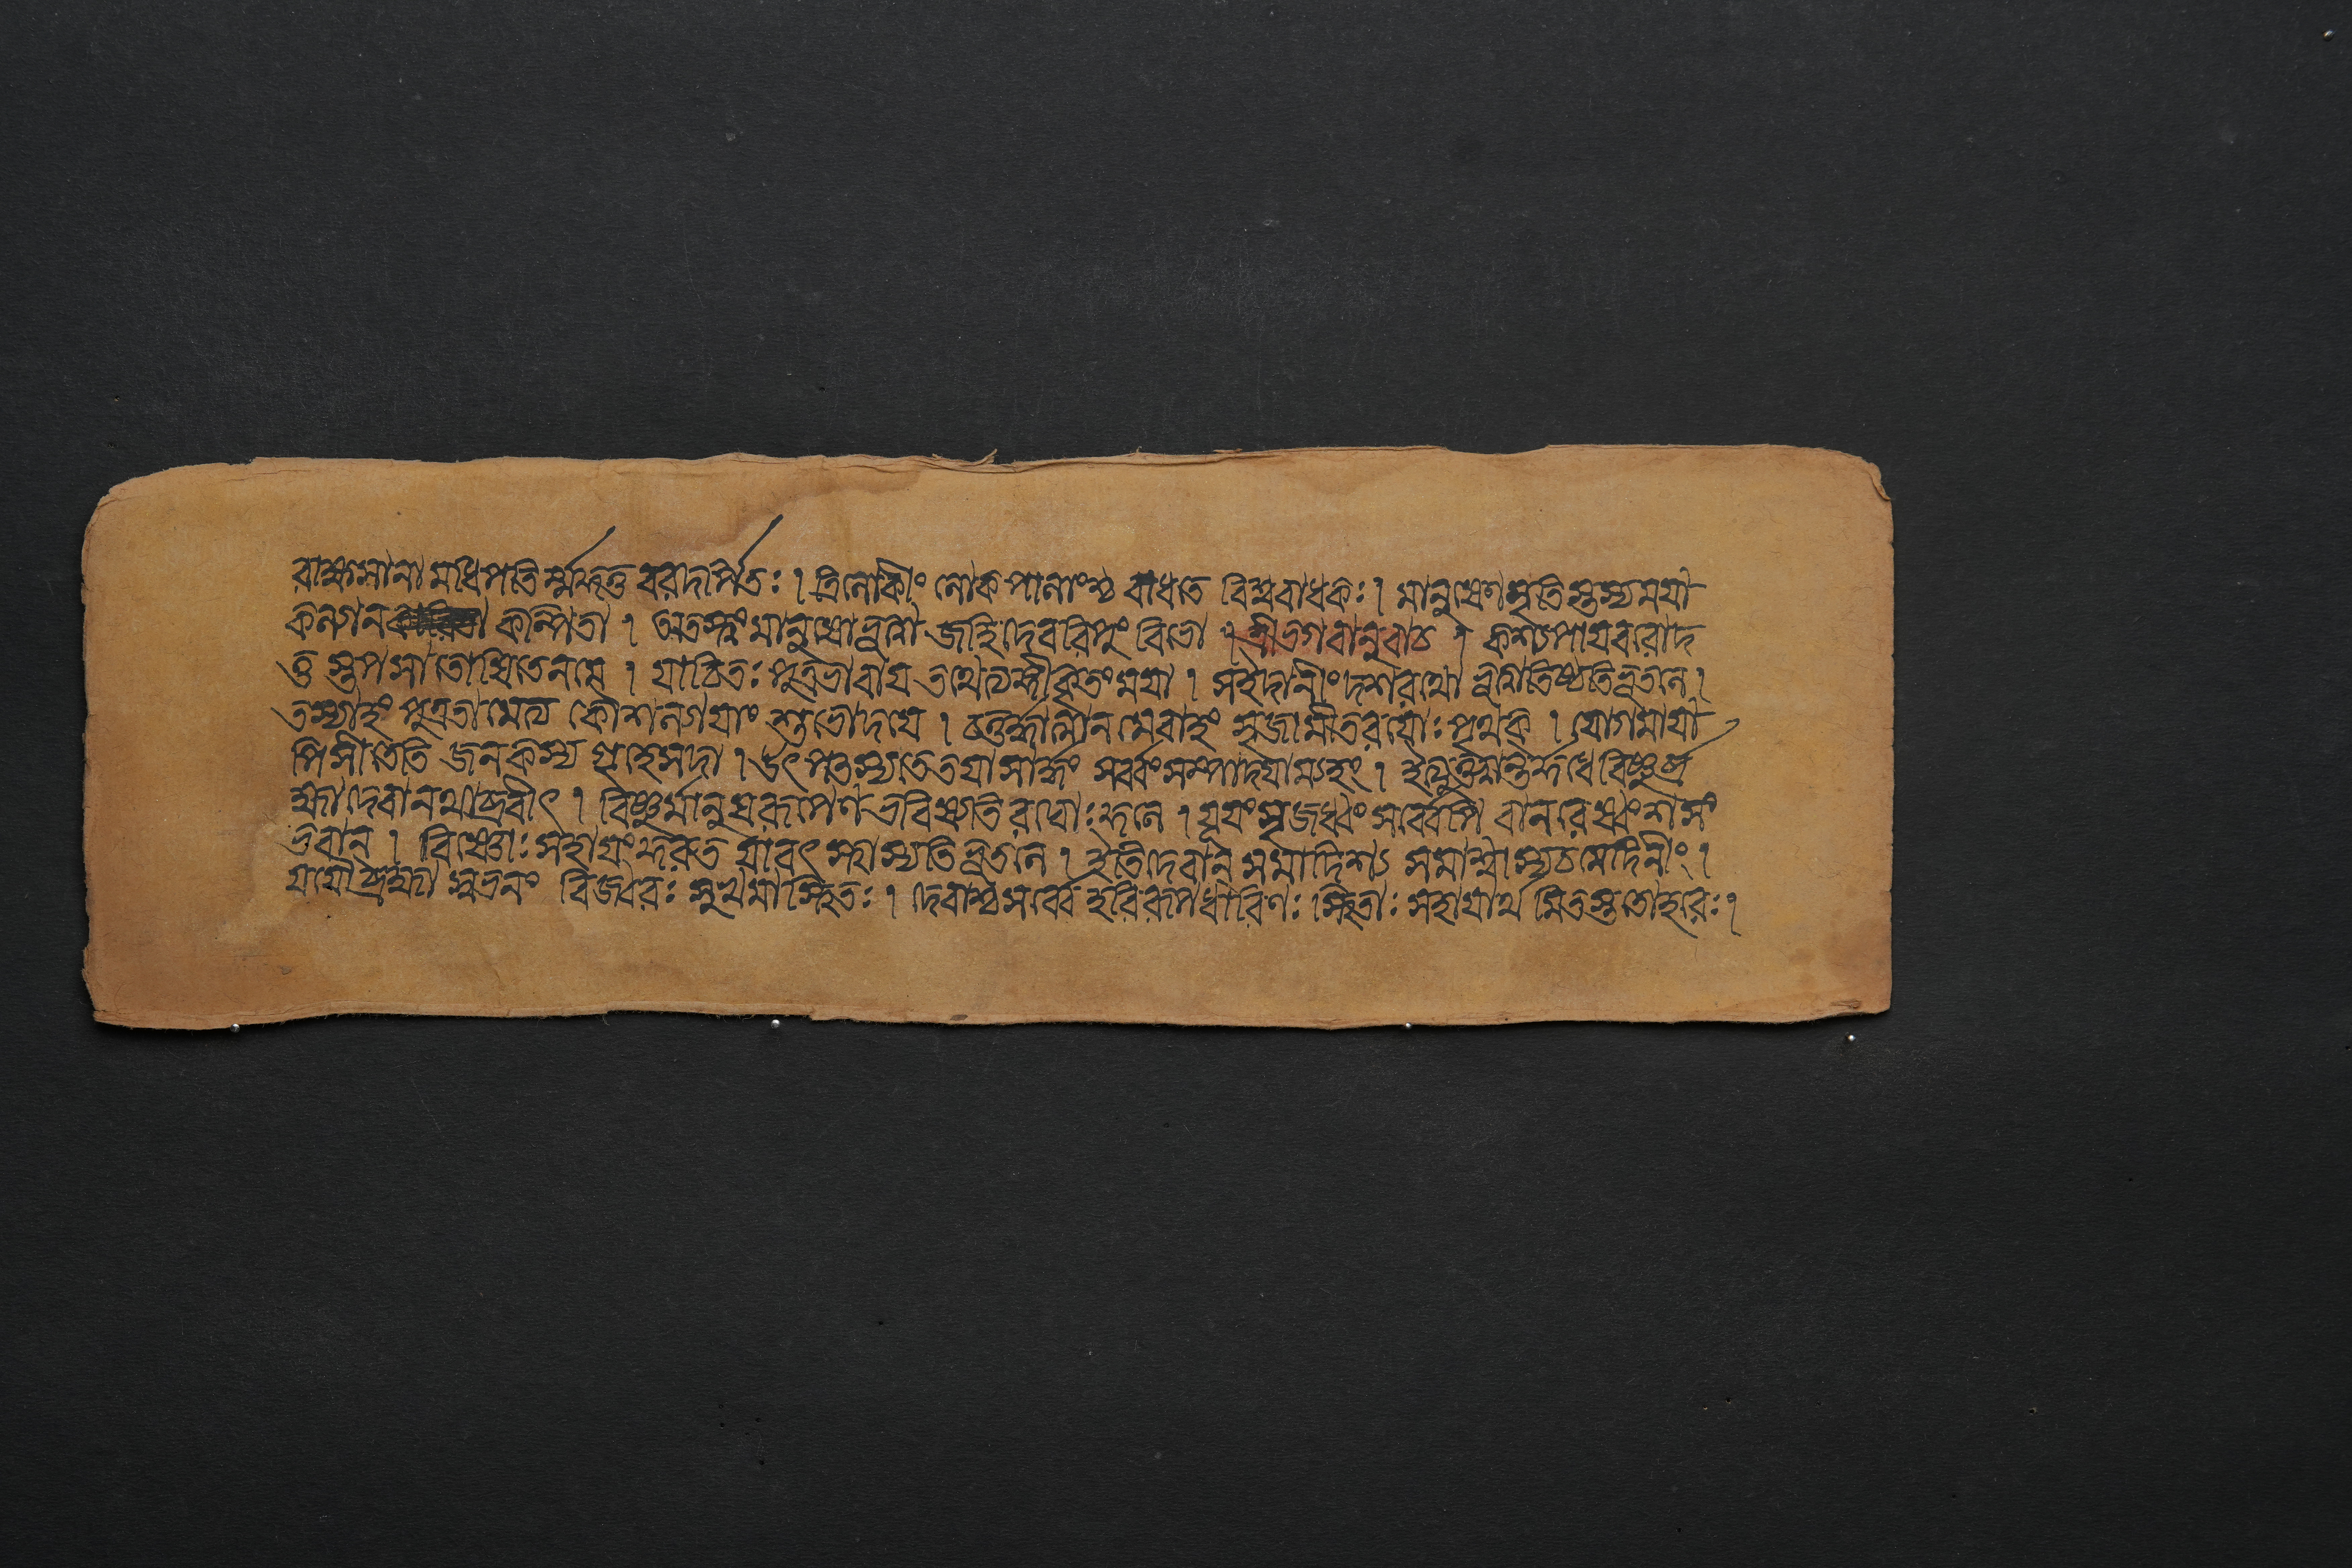 রাক্ষসানামধিপতির্ম্মদ্দত্তবরদর্পিতঃ । ত্রিলোকীং লোকপালাংশ্চ বাধতে বিশ্ববাধকঃ । মানুষেণ মৃতিস্তস্য ময়া
কল্পিতা । অতস্ত্বং মানুষো ভূত্বা জহি দেবরিপুং বিভো । শ্রীভগবানুবাচ । কশ্যপায় বরো দ
ত্তস্তপসা তোষিতেন মে । যাচিতঃ পুত্রভাবায় তথেত্যঙ্গীকৃতং ময়া । স ইদানীং দশরথো ভূত্বা তিষ্ঠতি ভূতলে ।
তস্যাহং পুত্রতামেত্য কৌশল্যায়াং শুভোদয়ে । চতুর্দ্ধাত্মানমেবাহং সৃজামীতরয়োঃ পৃথক্ । যোগমায়া
পি সীতেতি জনকস্য গৃহে সদা । উৎপত্স্যতে তয়া সার্দ্ধং সর্ব্বং সম্পাদয়াম্যহং । ইত্যুক্ত্বান্তর্দ্দধে বিষ্ণুর্ব্র
হ্মা দেবানথাব্রবীৎ । বিষ্ণুর্মানুষরূপেণ ভবিষ্যতি রঘোঃ কুলে । যূয়ং সৃজধ্বং সর্ব্বেপি বানরেষ্বংশসং
ভবান্ । বিষ্ণোঃ সহায়ং কুরুত যাবৎ স্থাস্যতি ভূতলে । ইতি দেবান্ সমাদিশ্য সমাশ্বাস্য চ মেদিনীং ।
যযৌ ব্রহ্মা স্বভবনং বিজ্বরঃ সুখমাস্থিতঃ । দেবাশ্চ সর্ব্বে হরিরূপধারিণঃ স্থিতাঃ সহায়ার্থমিতস্ততো হরেঃ ।